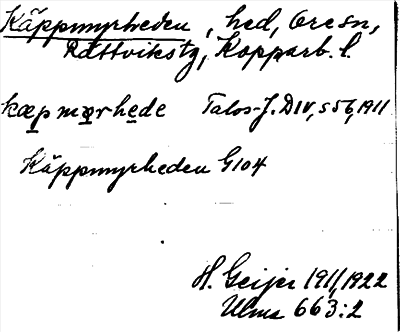 Käppmyrheden, hed, Ore sn,
Rättvikstg, Kopparb. l.
kæpmœrhede Talos-J. DIV, s 56, 1911
Käppmyrheden G104
H. Geijer 1911, 1922
Ulma 663:2